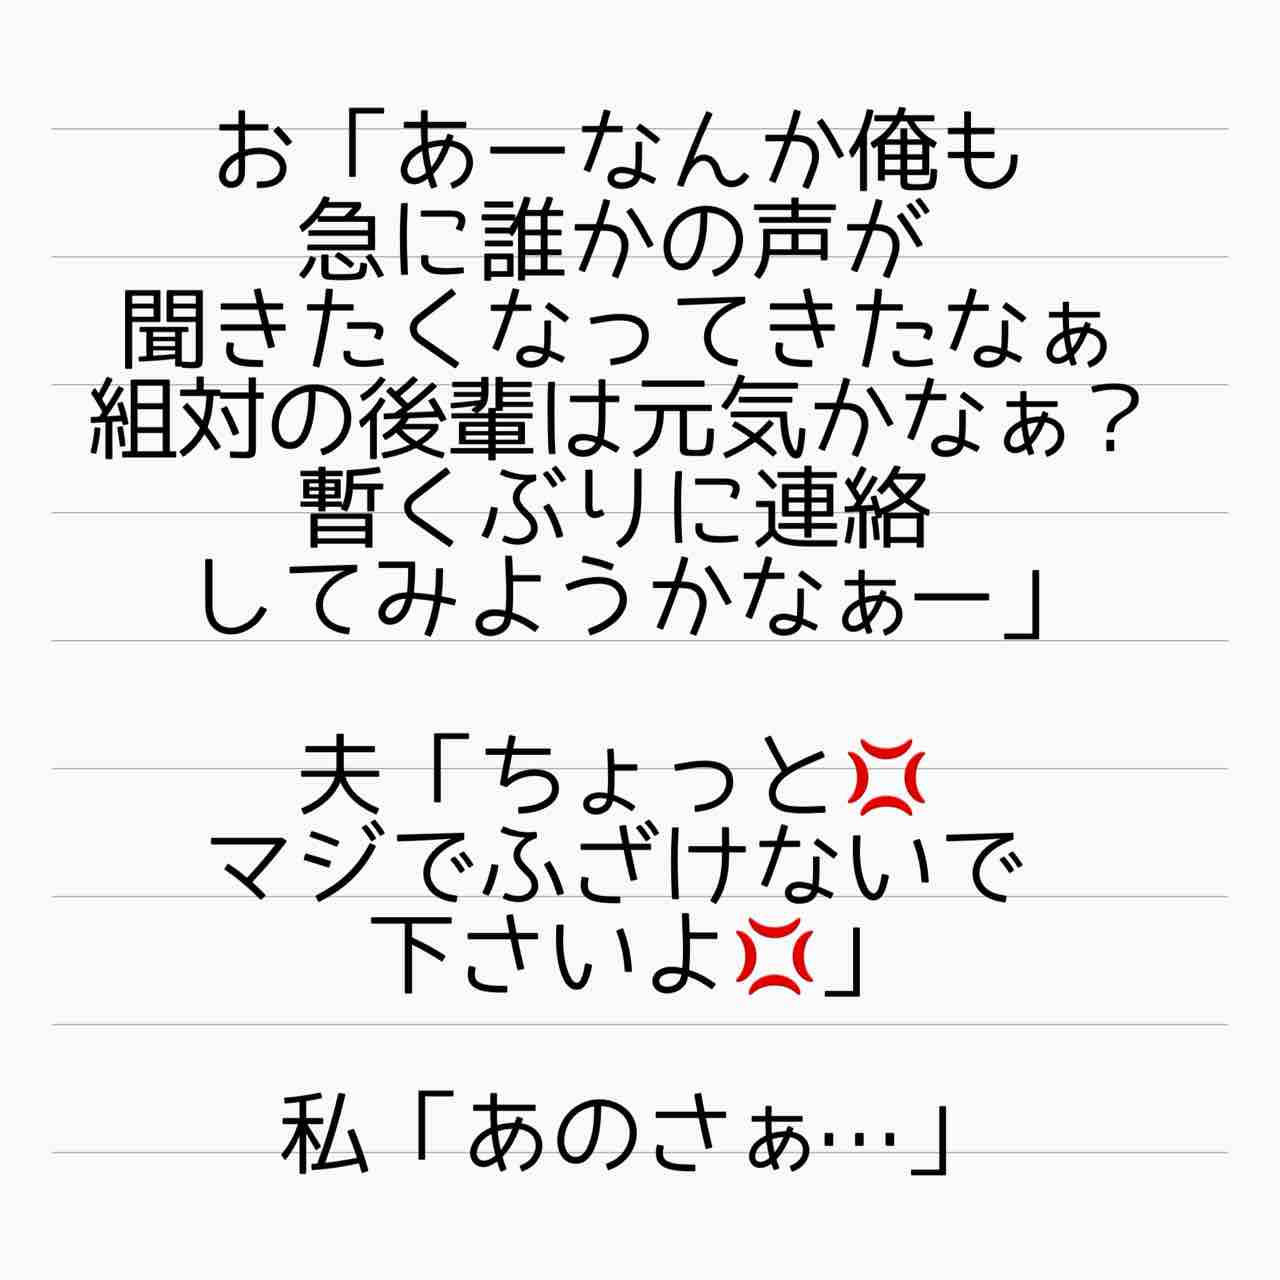 お「あーなんか俺も
急に誰かの声が
聞きたくなってきたなぁ
組対の後輩は元気かなぁ?
暫くぶりに連絡
してみようかなぁー」
夫「ちょっと💢
マジでふざけないで
下さいよ💢」
私「あのさぁ…」